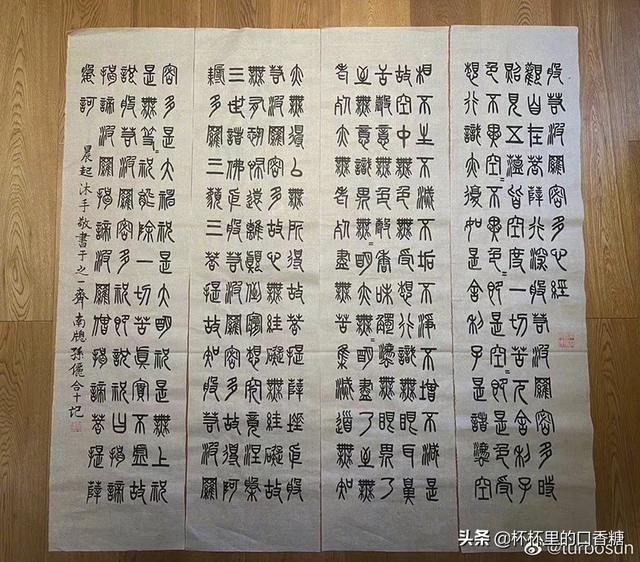 般若波羅密多心經
觀自在菩薩行深般若波羅密多時
照見五蘊皆空度一切苦厄舍利子
色不異空=不異色=即是空=即是色受
想行識亦復如是舍利子是諸法空
相不生不滅不垢不淨不增不減是
故空中無色無受想行識無眼耳鼻
舌身意無色聲香味觸法無眼界乃
至無意識界無=明亦無=明盡乃至無
老死亦無老死盡無苦集滅道無智
亦無得以無所得故菩提薩埵依般
若波羅密多故心無罣礙無罣礙故
無有恐怖遠離顛倒夢想究竟涅槃
三世諸佛依般若波羅密多故得阿
耨多羅三藐三菩提故知般若波羅
密多是大神咒是大明咒是無上咒
是無等=咒能除一切苦真實不虛故
說般若波羅密多咒即說咒曰揭諦
揭諦波羅揭諦波羅僧揭諦菩提薩
婆訶
晨起沐手敬書于之一齋南牕孫儷合十記
头条 @杯杯里的口香糖
@turbosun